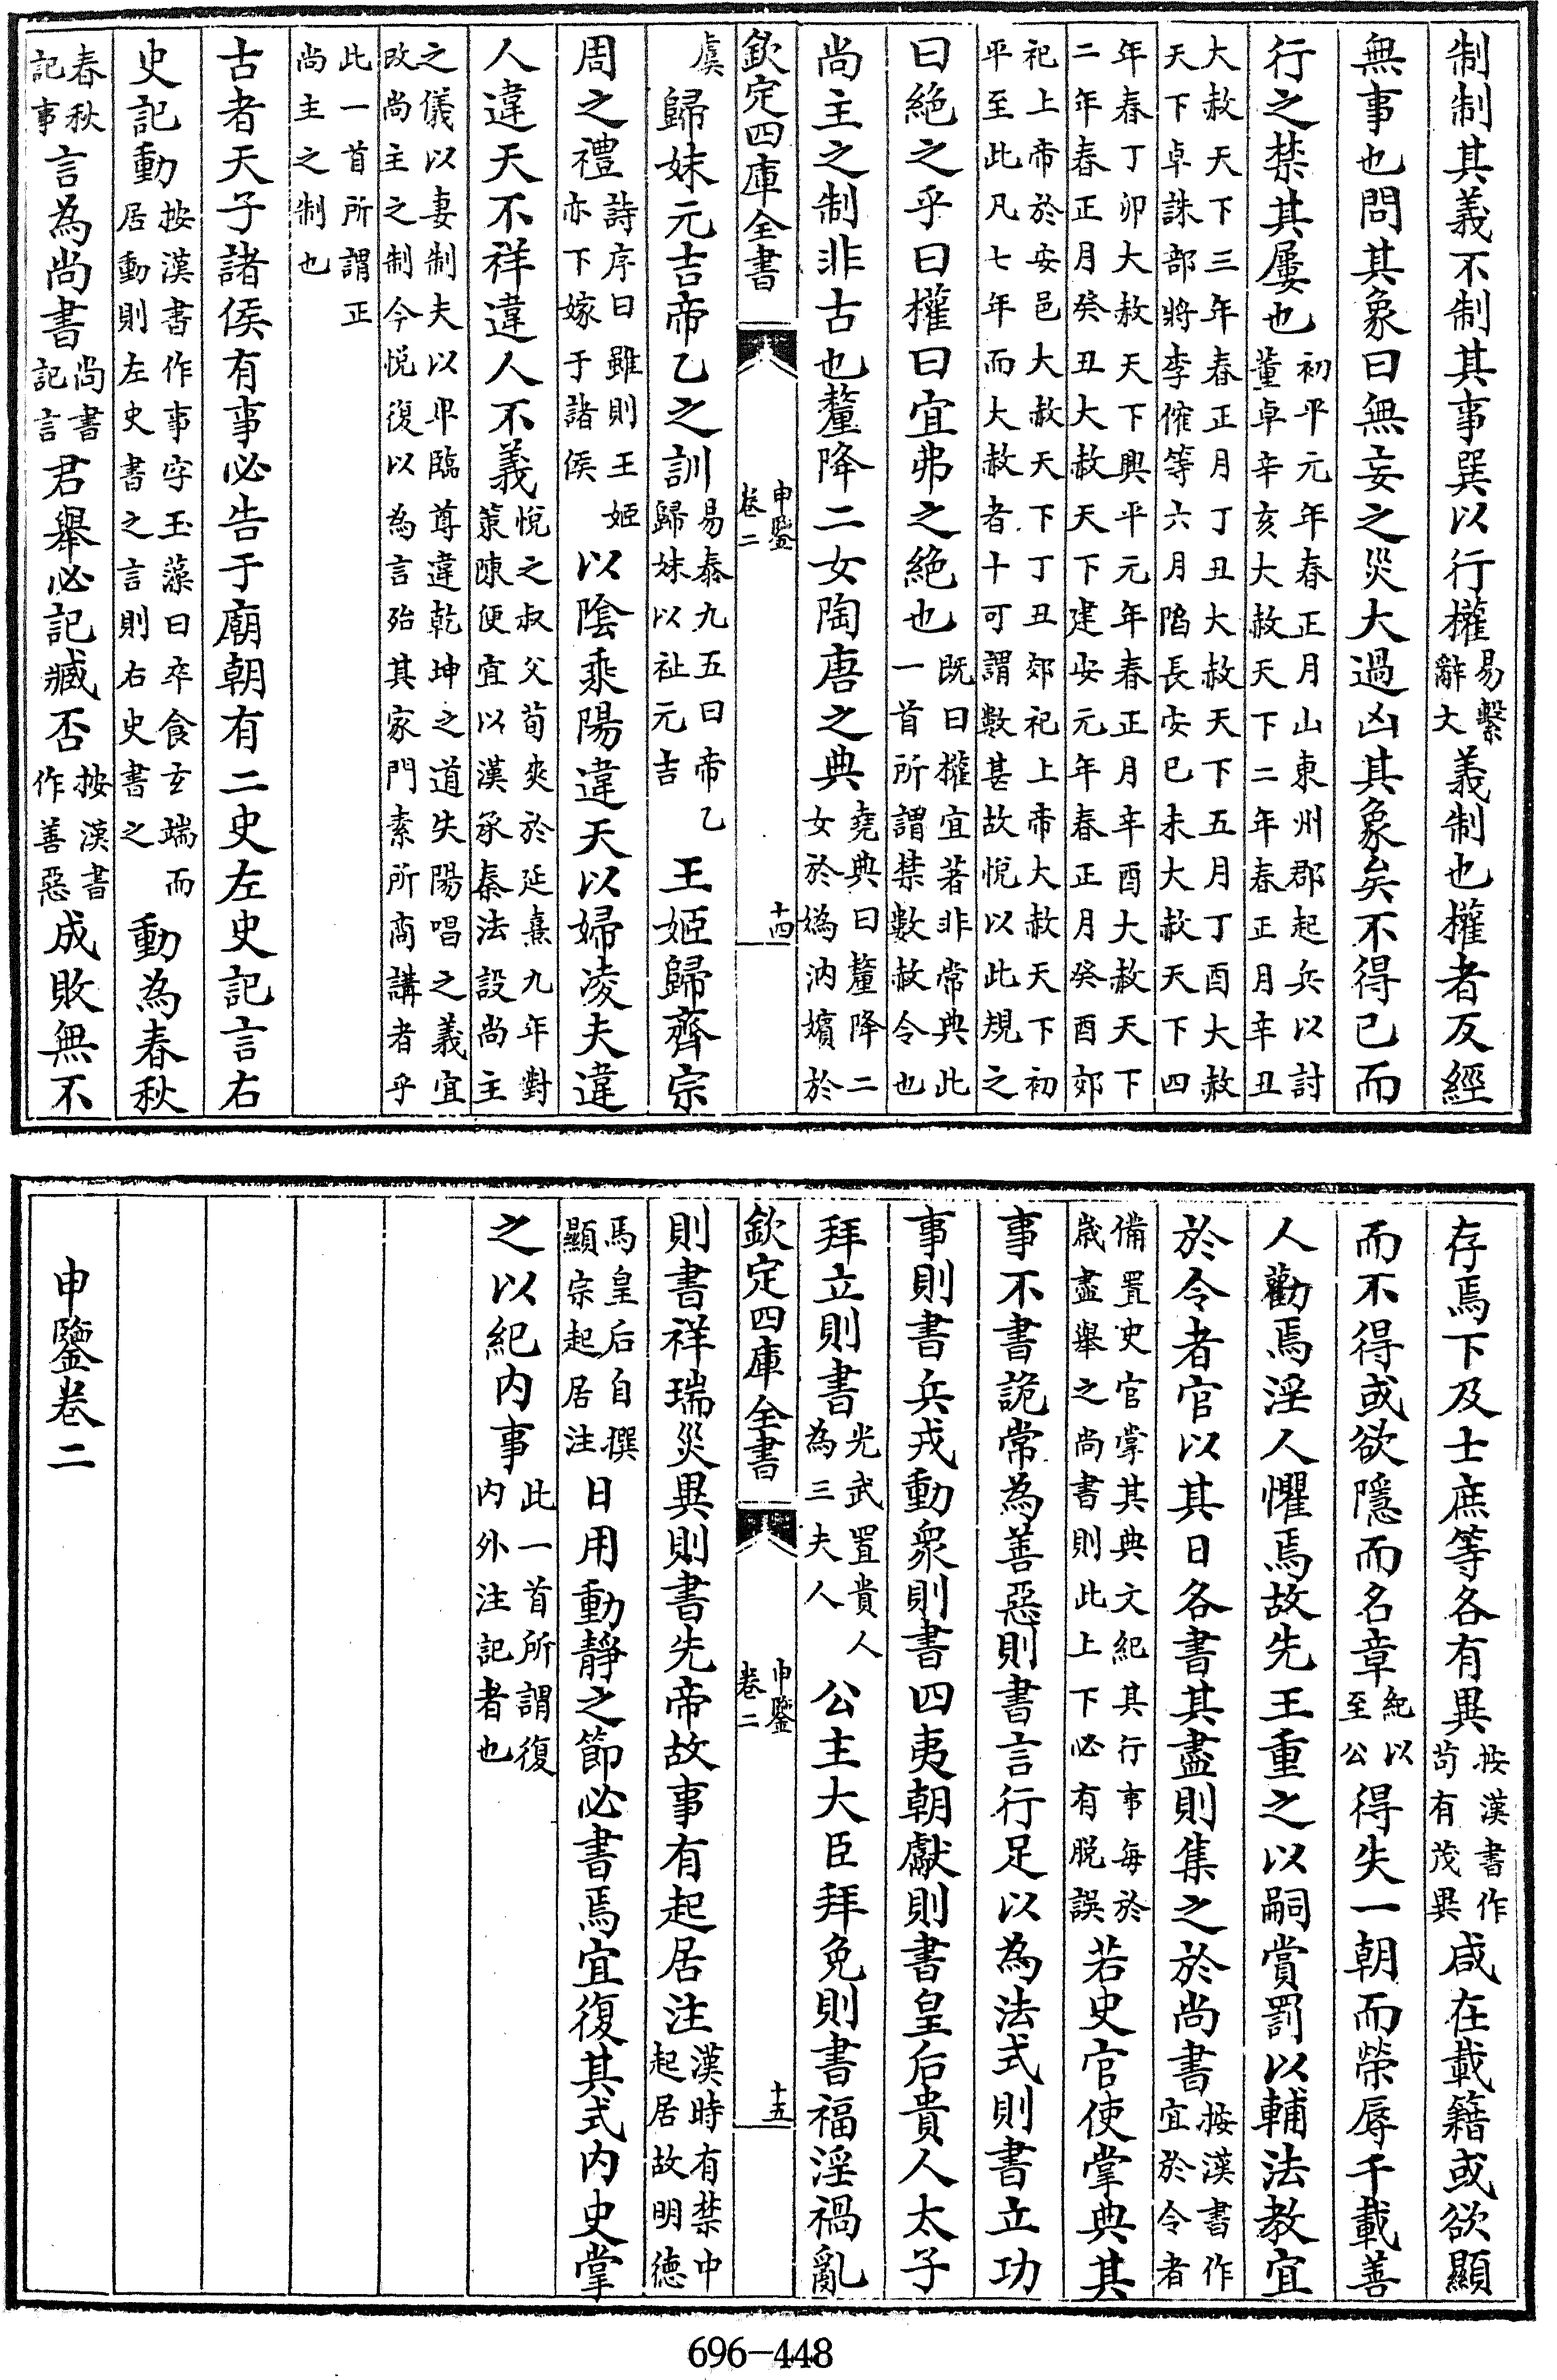 制制其義不制其事巽以行權易繫辭大義制也權者反經
無事也問其象曰無妄之災大過凶其象矣不得已而
行之禁其屢也初平元年春正月山東州郡起兵以討董卓辛亥大赦天下二年春正月辛丑
大赦天下三年春正月丁丑大赦天下五月丁酉大赦天下卓誅部將李傕等六月陷長安已未大赦天下四
年春丁卯大赦天下興平元年春正月辛酉大赦天下二年春正月癸丑大赦天下建安元年春正月癸酉郊
祀上帝於安邑大赦天下丁丑郊祀上帝大赦天下初平至此凡七年而大赦者十可謂數甚故悅以此規之
曰絶之乎曰權曰宜弗之絶也既曰權宜著非常典此一首所謂禁數赦令也
尚主之制非古也釐降二女陶唐之典堯典曰釐降二女於嬀汭嬪於
欽定四庫全書
申鑒
卷二
十四
虞歸妹元吉帝乙之訓易泰九五曰帝乙歸妹以祉元吉王姬歸齊宗
周之禮詩序曰雖則王姬亦下嫁于諸侯以陰乘陽違天以婦凌夫違
人違天不祥違人不義悅之叔父荀爽於延熹九年對策陳便宜以漢承秦法設尚主
之儀以妻制夫以卑臨尊違乾坤之道失陽唱之義宜改尚主之制今悅復以為言殆其家門素所商講者乎
此一首所謂正尚主之制也
古者天子諸侯有事必告于廟朝有二史左史記言右
史記動按漢書作事字玉藻曰卒食玄端而居動則左史書之言則右史書之動為春秋
春秋記事言為尚書尚書記言君舉必記臧否按漢書作善惡成敗無不
存焉下及士庶等各有異按漢書作苟有茂異咸在載籍或欲顯
而不得或欲隱而名章紀以至公得失一朝而榮辱千載善
人勸焉淫人懼焉故先王重之以嗣賞罰以輔法教宜
於令者官以其日各書其盡則集之於尚書按漢書作宜於令者
備置史官掌其典文紀其行事每於歲盡舉之尚書則此上下必有脫誤若史官使掌典其
事不書詭常為善惡則書言行足以為法式則書立功
事則書兵戎動衆則書四夷朝獻則書皇后貴人太子
拜立則書光武置貴人為三夫人公主大臣拜免則書福淫禍亂
欽定四庫全書
申鑒
卷二
十五
則書祥瑞災異則書先帝故事有起居注漢時有禁中起居故明德
馬皇后自撰顯宗起居注日用動靜之節必書焉宜復其式內史掌
之以紀內事此一首所謂復內外注記者也
申鑒卷二
696-448